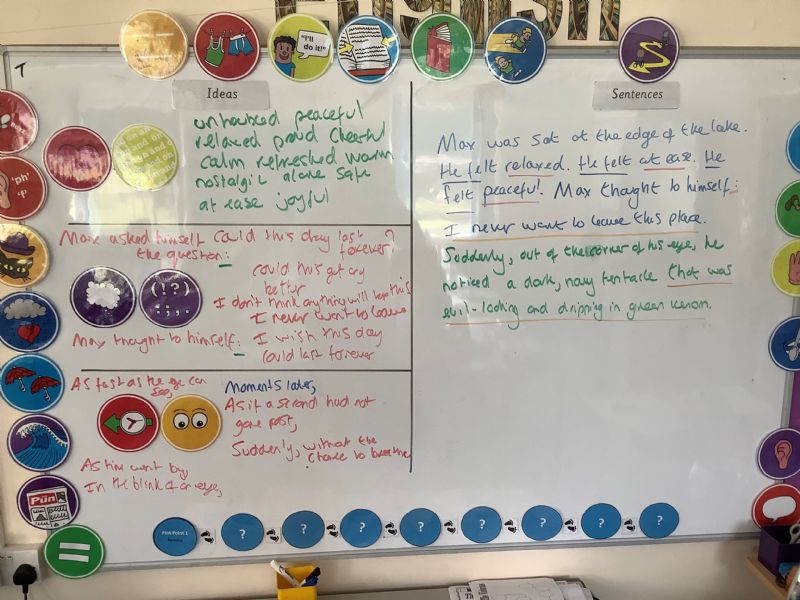 English
"I'll
do it!"
T
Ideas
Sentences
'ph'
'f'
unhooked peaceful
relaxed proud cheerful
calm refreshed warm
nostalgic alone safe
at ease joyful
Max asked himself
the question:
could this day last
forever?
could this get any
better
I don't think anything will this
I never want to leave
Max thought to himself:
I wish this day
could last forever
(!?)
As fast as the eye can
see,
Moments later,
As if a second had not
gone past,
Suddenly, without the
chance to breathe
As time went by,
In the blink of an eye,
Max was sat at the edge of the lake.
He felt relaxed. He felt at ease. He
felt peaceful. Max thought to himself:
I never want to leave this place.
Suddenly, out of the corner of his eye, he
noticed a dark, navy tentacle that was
evil-looking and dripping in green venom.
Pun
=
Plot Point 1
? ? ? ? ? ? ? ?